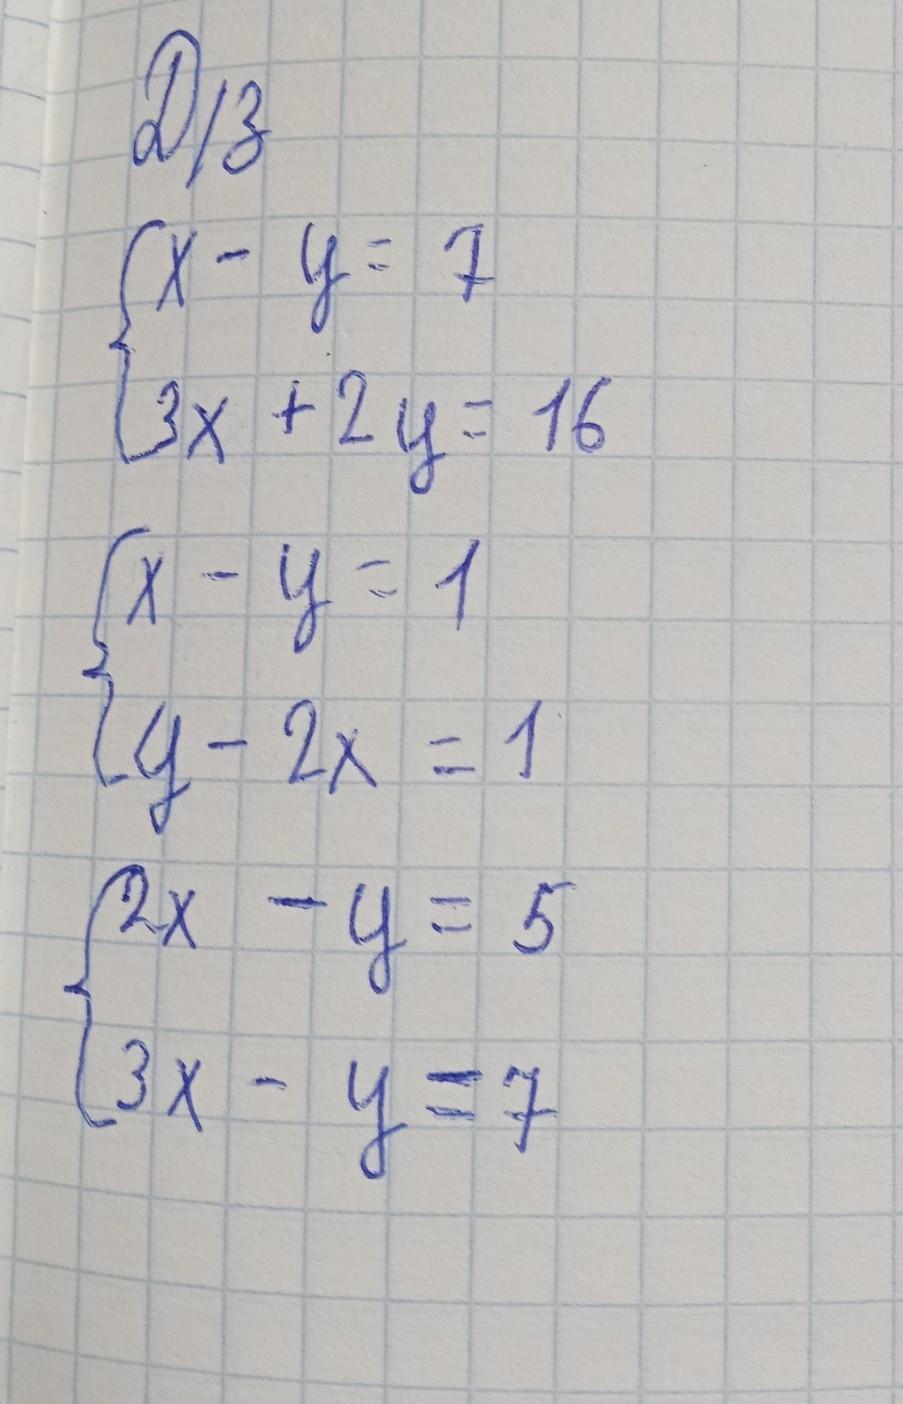 Д/з
x - y = 7
3x + 2y = 16
x - y = 1
y - 2x = 1
2x - y = 5
3x - y = 7